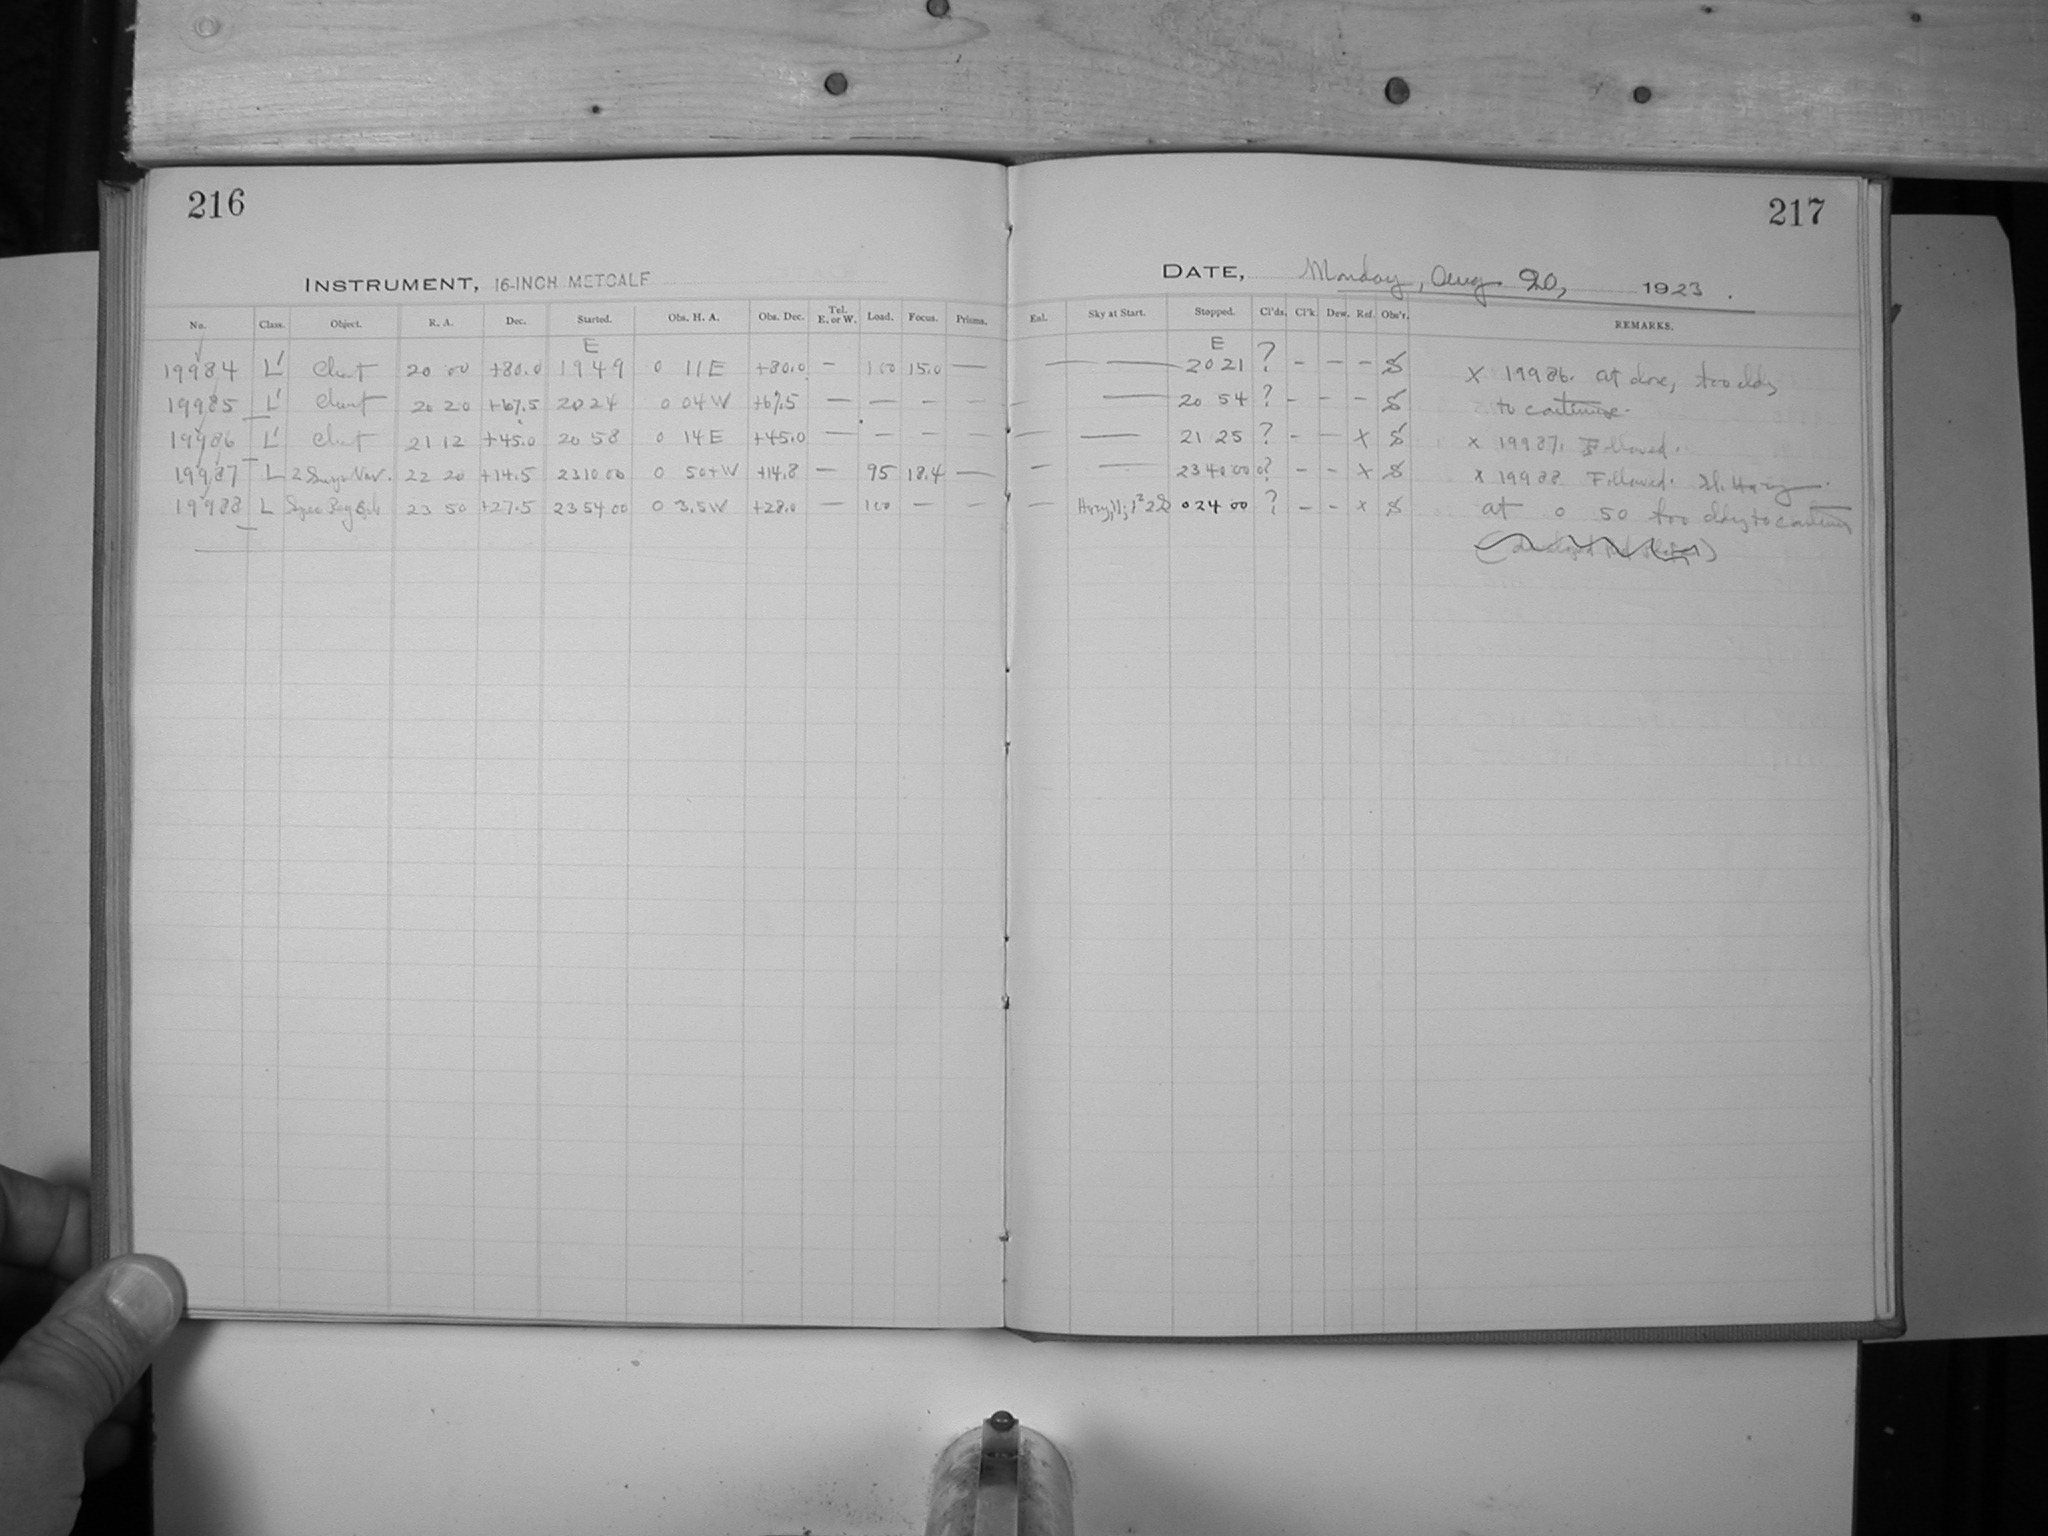 216
INSTRUMENT, 16-INCH METCALF
No. Class. Object. R. A. Dec. Started. Obs. H. A. Obs. Dec. Tel. E. or W. Load. Focus. Prisms.
E
19984 L' Chart 20 00 +80.0 19 49 0 11 E +80.0 — 100 15.0 —
19985 L' Chart 20 20 +67.5 20 24 0 04 W +67.5 — — — —
19986 L' Chart 21 12 +45.0 20 58 0 14 E +45.0 — — — —
19987 L 22 20 +14.5 23 10 00 0 50+W +14.8 — 95 18.4 —
19988 L 23 50 +27.5 23 54 00 0 3.5 W +28.0 — 100 — —
217
DATE, Monday, Aug 20, 1923.
Enl. Sky at Start. Stopped. Cl'ds. Cl'k. Dew. Ref. Obs'r. REMARKS.
E
— — 20 21 ? – – – S
— — 20 54 ? – – – S
— — 21 25 ? – – X S
— — 23 40 00 ? – – X S
— Hazy, 02 4 00 ? – – x S
X 19986. At done, too cldy
to continue.
x 19987. Followed.
x 19988 Followed. Hazy.
at 0 50 too cldy to continue